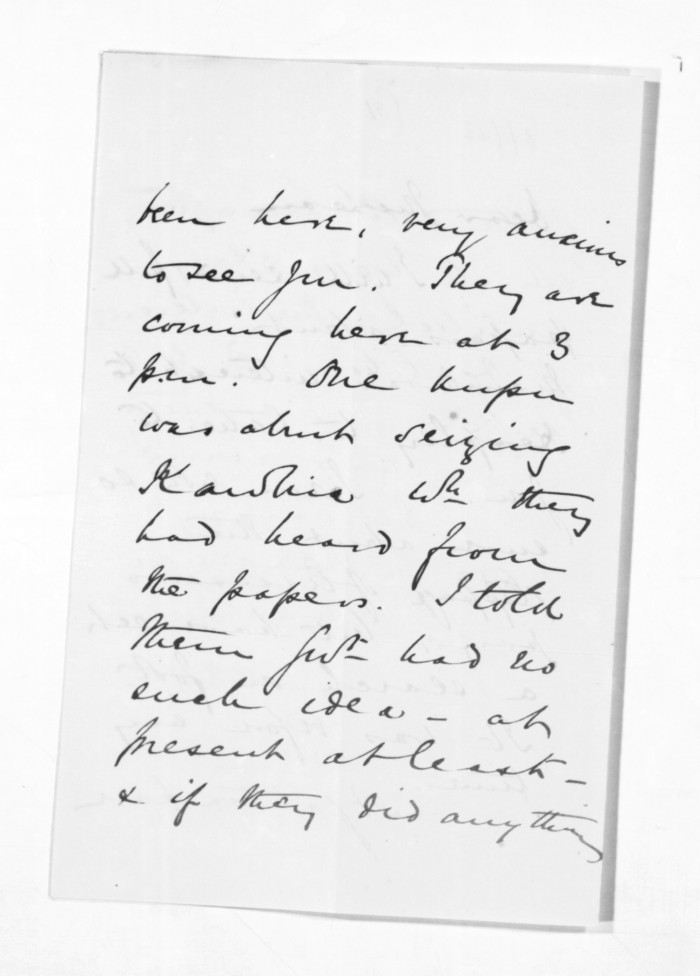 been here, very anxious
to see you. They are
coming here at 3
p.m. One kupu
was about seizing
Kawhia wh they
had heard from
the papers. I told
them Govt had no
such idea - at
present at least -
& if they did anything